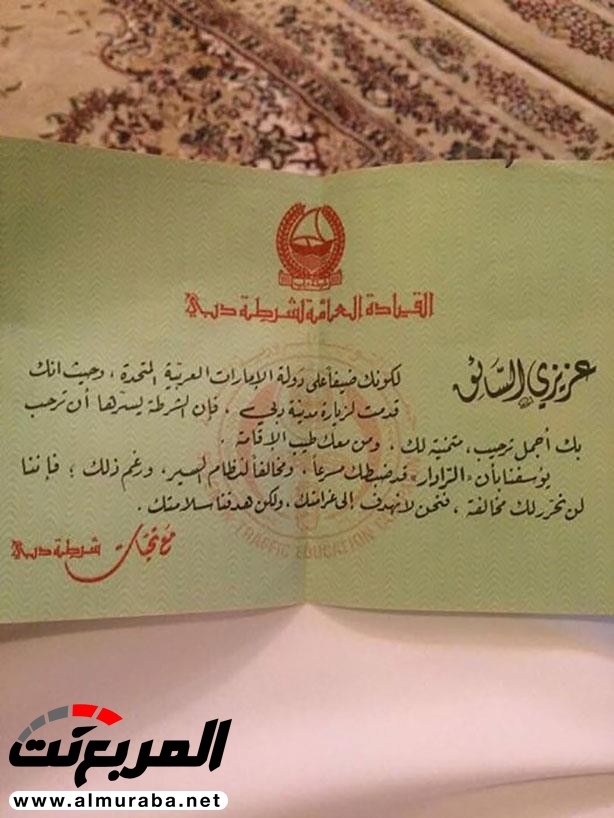 القيادة العامة لشرطة دبي
عزيزي السائق
لكونك ضيفاً على دولة الإمارات العربية المتحدة ، وحيث انك
قدمت لزيارة مدينة دبي ، فإن الشرطة يسرها أن ترحب
بك أجمل ترحيب ، متمنية لك ، ومن معك طيب الإقامة .
يؤسفنا بأن «الرادار» قد ضبطك مسرعاً ، ومخالفاً لنظام السير ، ورغم ذلك ؛ فإننا
لن نحرر لك مخالفة ، فنحن لا نهدف إلى غرامتك ، ولكن هدفنا سلامتك .
مع تحيات شرطة دبي
TRAFFIC EDUCATION
المربع نت
www.almuraba.net